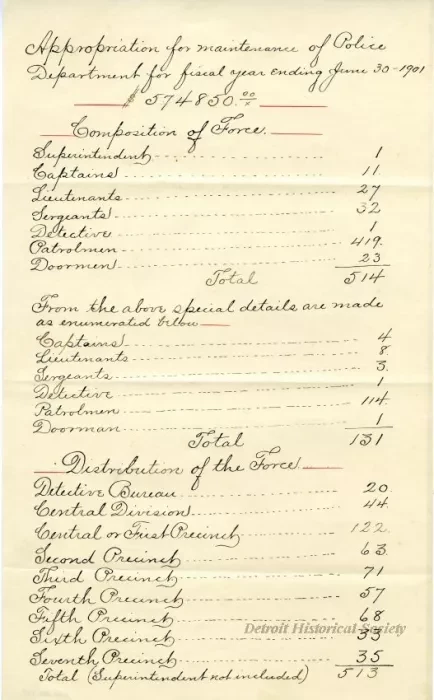 Appropriation for maintenance of Police
Department for fiscal year ending June 30-1901
$574850.00/x
Composition of Force.
Superintendent 1
Captains 11.
Lieutenants 27
Sergeants 32
Detective 1
Patrolmen 419.
Doormen 23
Total 514
From the above special details are made
as enumerated below
Captains 4
Lieutenants 8
Sergeants 3.
Detective 1
Patrolmen 114
Doorman 1
Total 131
Distribution of the Force
Detective Bureau 20.
Central Division 44.
Central or First Precinct 122.
Second Precinct 63.
Third Precinct 71
Fourth Precinct 57
Fifth Precinct 68
Detroit Historical Society
Sixth Precinct 33
Seventh Precinct 35
Total (Superintendent not included) 513